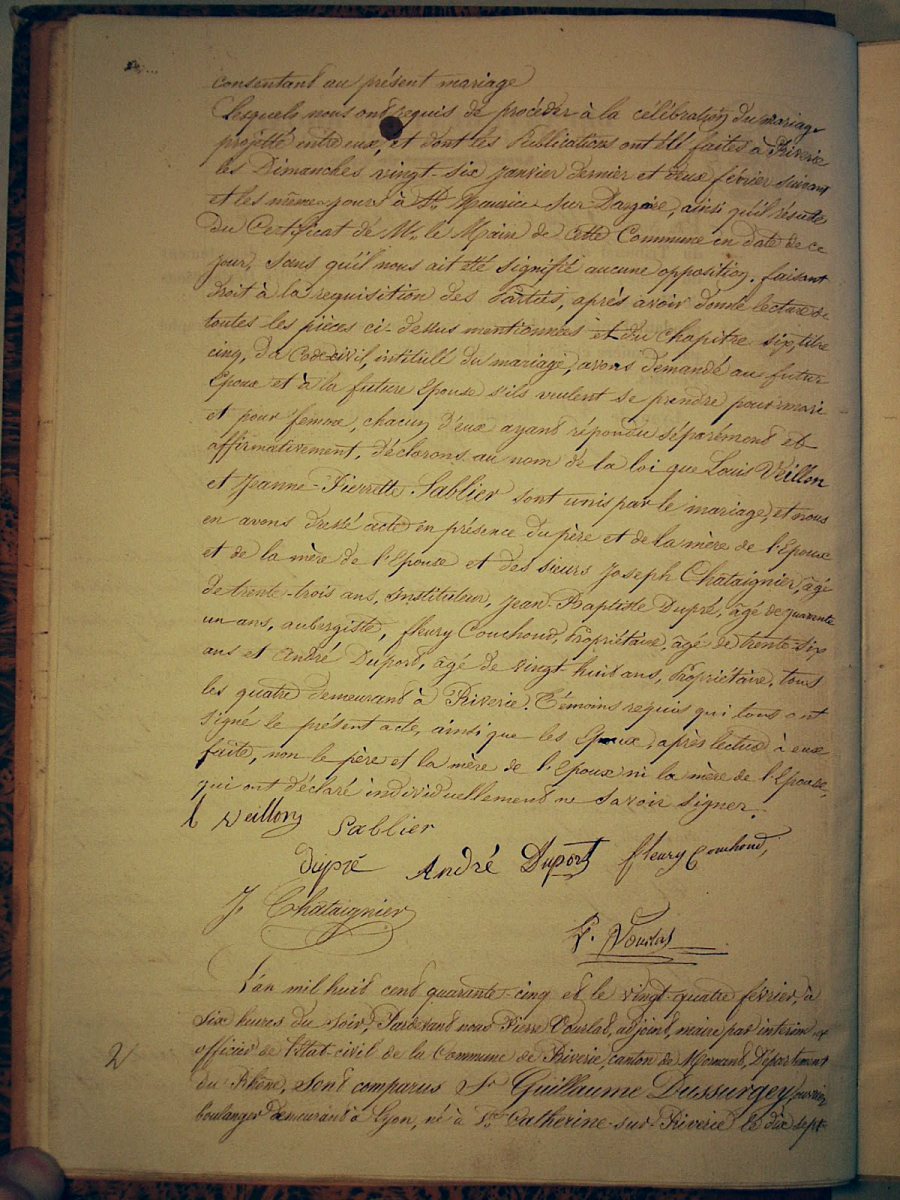 consentant au présent mariage
Lesquels nous ont requis de procéder à la célébration du mariage
projetté entre eux, et dont les Publications ont été faites à Riverie
les Dimanches vingt-six Janvier dernier et deux février suivant
et les même jours à St Maurice sur Dargoire, ainsi qu'il résulte
du Certificat de Mr le Maire de cette Commune en date de ce
jour, sans qu'il nous ait été signifié aucune opposition. faisant
droit à la requisition des Parties, après avoir donné lecture de
toutes les pièces ci-dessus mentionnées et du Chapitre six, titre
cinq, du Code civil, intitulé du mariage, avons demandé au futur
Epoux et à la future Epouse s'ils veulent se prendre pour mari
et pour femme, chacun d'eux ayant répondu séparément et
affirmativement, déclarons au nom de la loi que Louis Veillon
et Jeanne-Pierrette Sablier sont unis par le mariage, et nous
en avons dressé acte en présence du père et de la mère de l'Epoux
et de la mère de l'Epouse et des sieurs Joseph Chataignier, âgé
de trente-trois ans, instituteur, Jean-Baptiste Dupré, âgé de quarante
un ans, aubergiste, fleury Couchoud, Propriétaire, âgé de trente-six
ans et André Duport, âgé de vingt huit ans, Propriétaire, tous
les quatre demeurant à Riverie. Témoins requis qui tous ont
signé le présent acte, ainsi que les Epoux, après lecture à eux
faite, non le père et la mère de l'Epoux ni la mère de l'Epouse,
qui ont déclaré individuellement ne savoir signer.
L Veillon Sablier
Dupré André Duport fleury Couchoud,
J Chataignier
P. Vourlat
L'an mil huit cent quarante-cinq et le vingt-quatre février, à
six heures du soir, Pardevant nous Pierre Vourlat, adjoint, maire par interim
2 officier de l'état-civil de la Commune de Riverie, canton de Mornant, Département
du Rhône, Sont comparus Sr Guillaume Dussurgey, ouvrier
boulanger demeurant à Lyon, né à Ste Catherine-sur-Riverie le dix sept